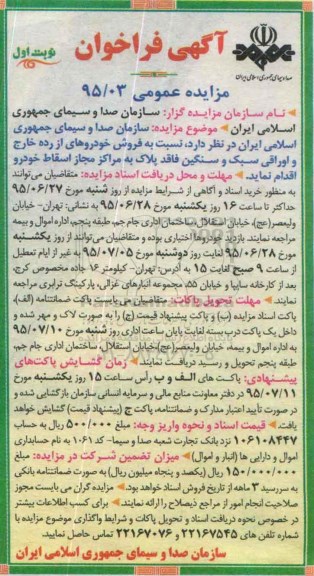 صدا و سیمای جمهوری اسلامی ایران
آگهی فراخوان
نوبت اول
مزایده عمومی ۹۵/۰۳
نام سازمان مزایده گزار: سازمان صدا و سیمای جمهوری
اسلامی ایران موضوع مزایده: سازمان صدا و سیمای جمهوری
اسلامی ایران در نظر دارد، نسبت به فروش خودروهای از رده خارج
و اوراقی سبک و سنگین فاقد پلاک به مراکز مجاز اسقاط خودرو
اقدام نماید. مهلت و محل دریافت اسناد مزایده: متقاضیان می‌توانند
به منظور خرید اسناد و آگاهی از شرایط مزایده از روز شنبه مورخ ۹۵/۰۶/۲۷
حداکثر تا ساعت ۱۶ روز یکشنبه مورخ ۹۵/۰۶/۲۸ به نشانی: تهران- خیابان
ولیعصر(عج)، خیابان استقلال، ساختمان اداری جام جم، طبقه پنجم، اداره اموال و بیمه
مراجعه نمایند. بازدید خودروها اختیاری بوده و متقاضیان می‌توانند از روز یکشنبه
مورخ ۹۵/۰۶/۲۸ لغایت روز دوشنبه مورخ ۹۵/۰۷/۰۵ به غیر از ایام تعطیل
از ساعت ۹ صبح لغایت ۱۵ به آدرس: تهران- کیلومتر ۱۶ جاده مخصوص کرج،
بعد از کارخانه سایپا و خیابان ۵۵، مجموعه انبارهای غزالی، پارکینگ ترابری مراجعه
نمایند. مهلت تحویل پاکات: متقاضیان می‌بایست پاکت ضمانتنامه (الف)،
پاکت اسناد مزایده (ب) و پاکت پیشنهاد قیمت (ج) را به صورت لاک و مهر شده و
داخل یک پاکت درب بسته لغایت پایان ساعت اداری روز شنبه مورخ ۹۵/۰۷/۱۰
به اداره اموال و بیمه، خیابان ولیعصر(عج)، خیابان استقلال، ساختمان اداری جام جم،
طبقه پنجم تحویل و رسید دریافت نمایند. زمان گشایش پاکت‌های
پیشنهادی: پاکت های الف و ب رأس ساعت ۱۵ روز یکشنبه مورخ
۹۵/۰۷/۱۱ در دفتر معاونت منابع مالی و سرمایه انسانی سازمان بازگشایی شده و
در صورت تأیید اعتبار مدارک و ضمانتنامه، پاکت ج (پیشنهاد قیمت) گشایش خواهد
یافت. قیمت اسناد و نحوه واریز وجه: مبلغ ۵۰۰/۰۰۰ ریال به حساب
۱۰۶۱۰۸۴۴۷ نزد بانک تجارت شعبه صدا و سیما- کد ۱۰۶۱ به نام حسابداری
اموال و دارایی ها (انبار و اموال) میزان تضمین شرکت در مزایده: مبلغ
۱۵۰/۰۰۰/۰۰۰ ریال (یکصد و پنجاه میلیون ریال) به صورت ضمانتنامه بانکی
به سررسید ۳ ماهه از تاریخ فروش اسناد خواهد بود. مزایده گران می بایست مجوز
صلاحیت انجام امور از مراجع ذیصلاح را ارائه نمایند. برای کسب اطلاعات بیشتر
در خصوص نحوه دریافت اسناد و تحویل پاکات و شرایط واگذاری موضوع مزایده با
شماره تلفن های ۲۲۱۶۷۵۴۵ و ۲۲۱۶۷۰۷۶ تماس حاصل نمایید.
سازمان صدا و سیمای جمهوری اسلامی ایران